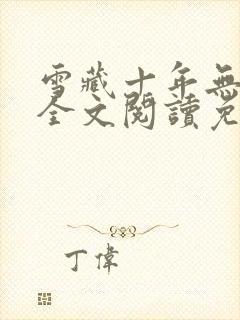 雪藏十年無
全文閱讀免
丁偉